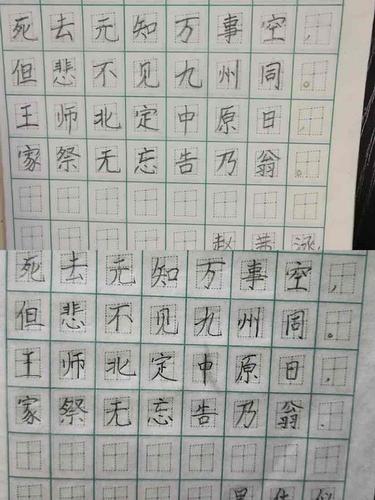 死去元知万事空,
但悲不见九州同。
王师北定中原日,
家祭无忘告乃翁。
死去元知万事空,
但悲不见九州周。
王师北定中原日,
家祭无忘告乃翁.